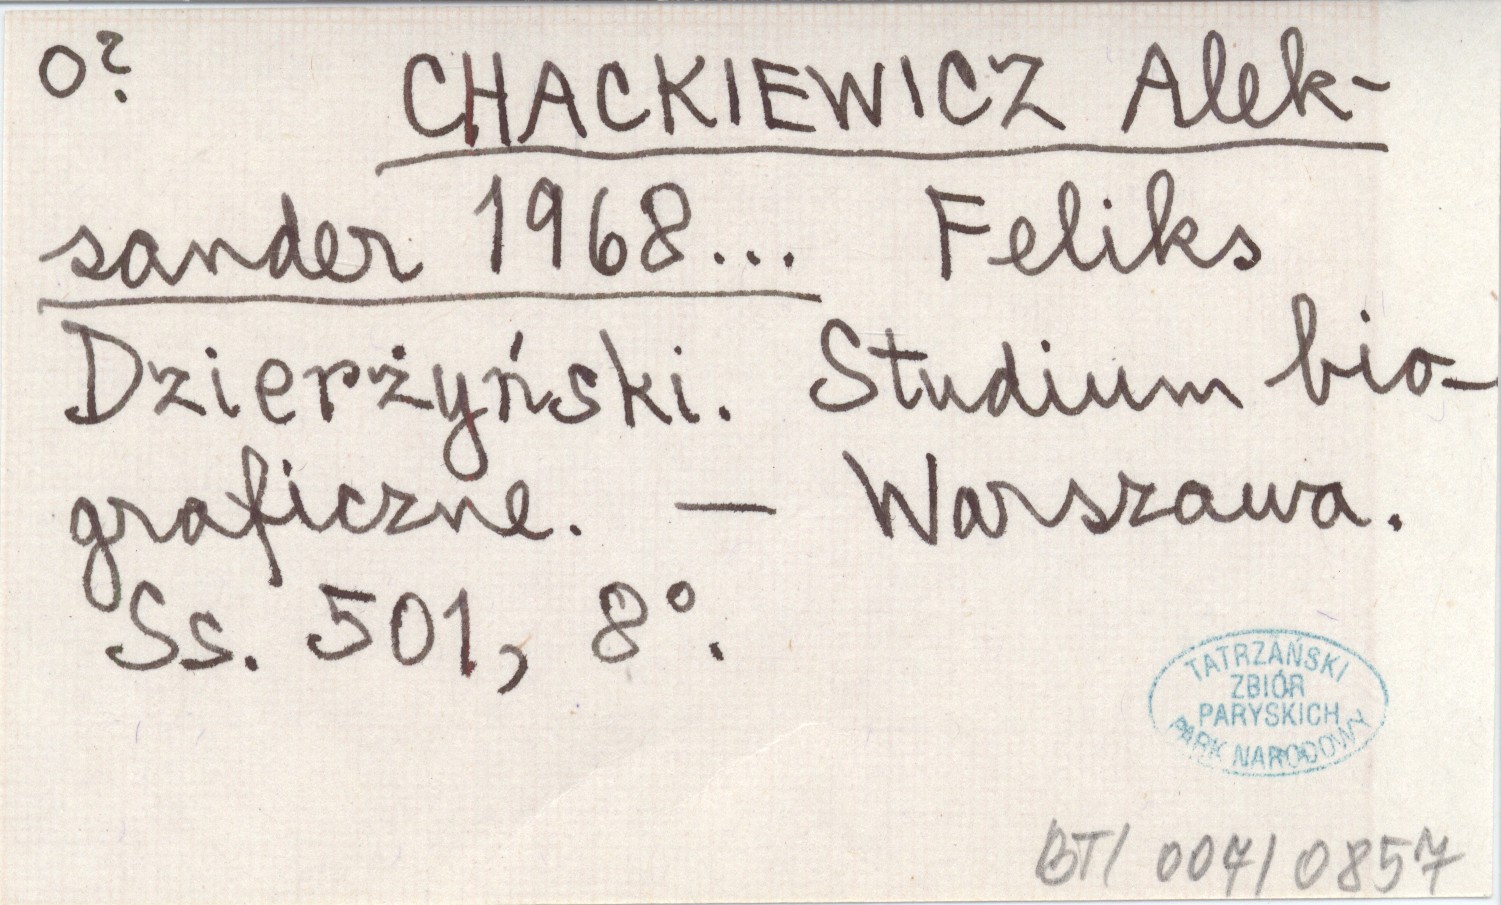 o?
CHACKIEWICZ Alek-
sander 1968... Feliks
Dzierżyński. Studium bio-
graficzne. — Warszawa.
Ss. 501, 8°.
TATRZAŃSKI
ZBIÓR
PARYSKICH
PARK NARODOWY
BT/ 007/0857